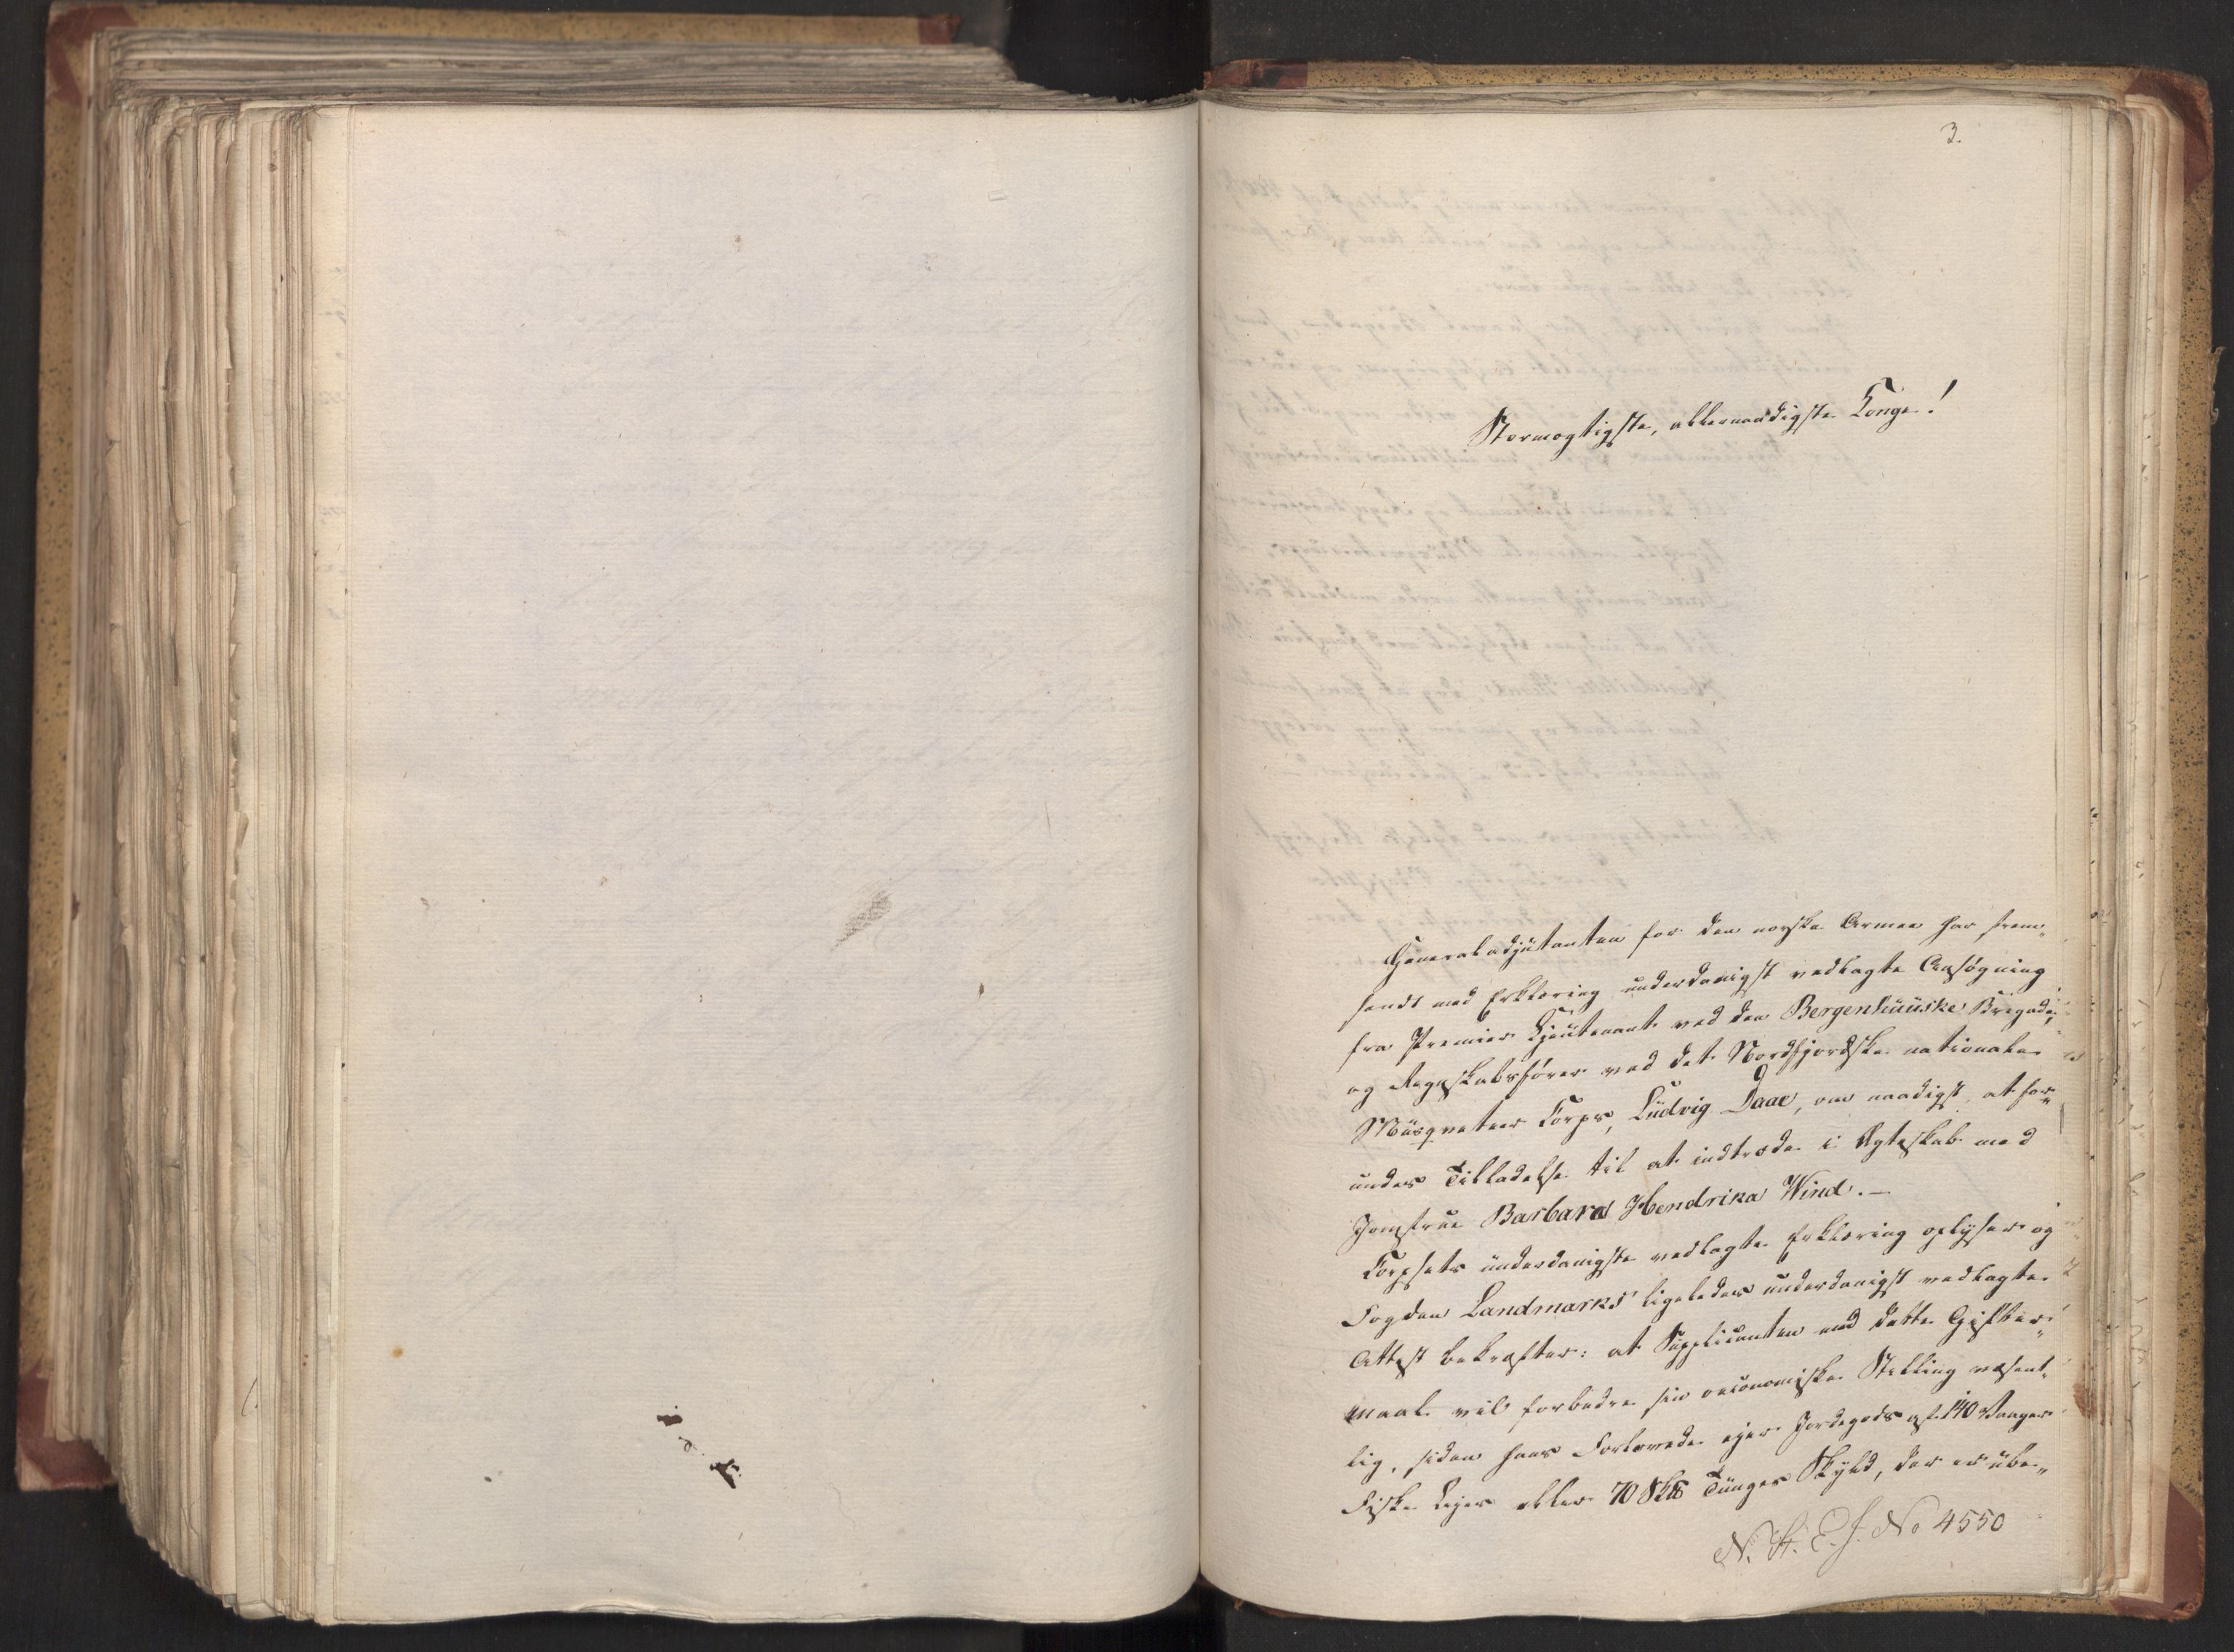 3.
Stormægtigste, allernaadigste Konge!
Generaladjutanten for den norske Armee har frem„
sendt med Erklæring underdanigst vedlagte Ansøgning
fra Premier Lieutenant ved den Bergenhuuske Brigade,
og Regnskabsfører ved det Nordfjordske nationale
Musqueteer Corps, Ludvig Daae, om naadigst at for„
undes Tilladelse til at indtræde i Ægteskab med
Jomfrue Barbara Hendrika Wind. —
Corpsets underdanigste vedlagte Erklæring oplyser og
Fogden Landmarks ligeledes underdanigst vedlagte
Attest bekræfter: at Supplicanten ved dette Gifter„
maal vil forbedre sin oeconomiske Stilling væsent„
lig, siden hans Forlovede ejer Jordegods af 140 Vaager
Fiske Lejer eller 70 Sk℔ Tunges Skyld, der er ube„
N. St. E. J. No 4550